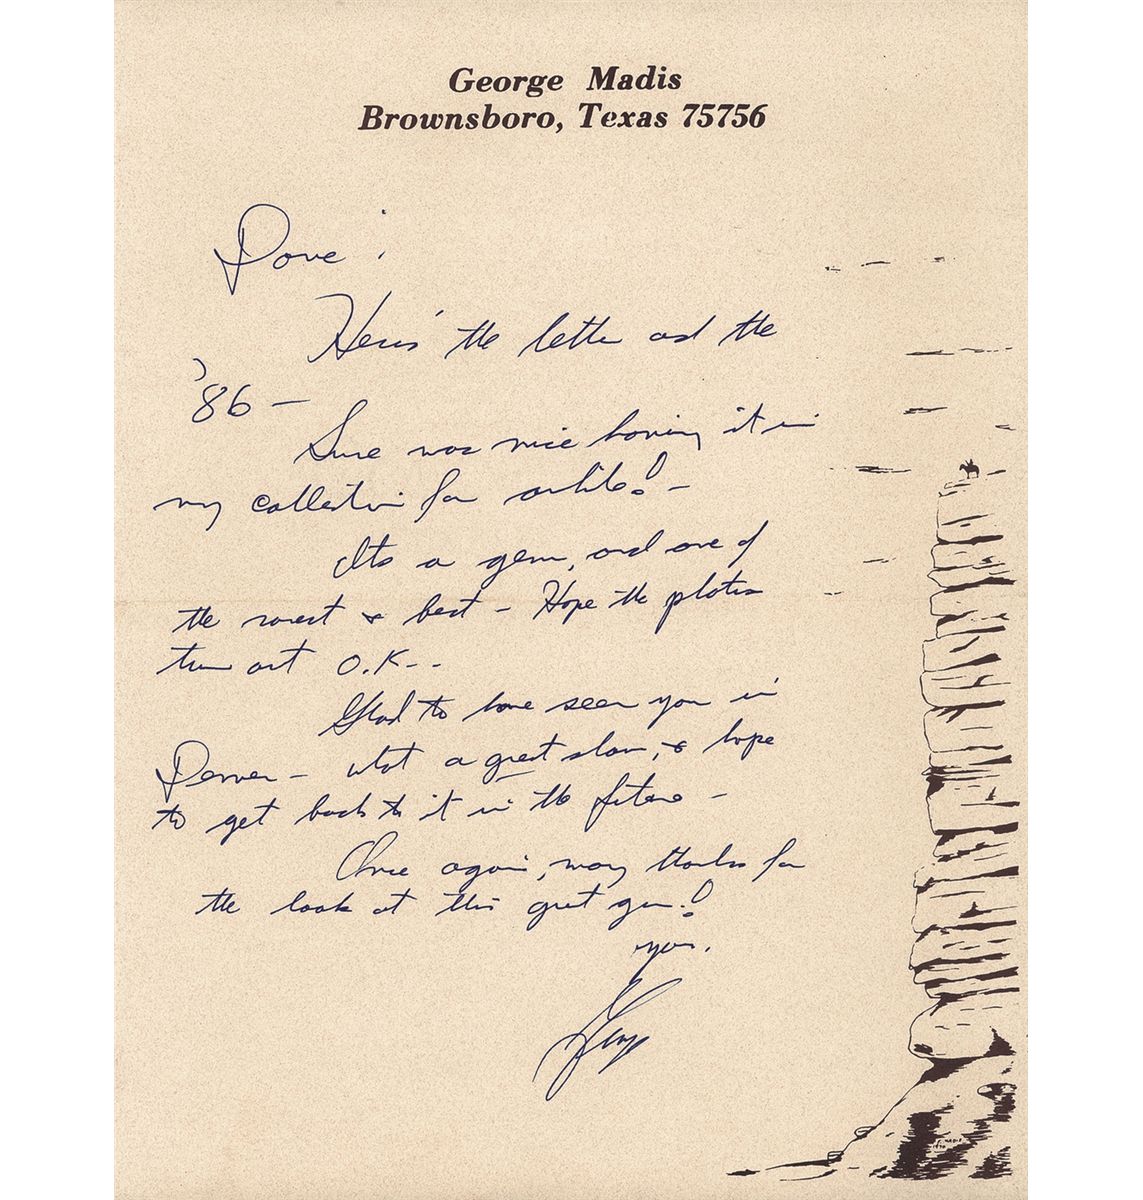 George Madis
Brownsboro, Texas 75756
Dave:
Here's the letter and the
'86 —
Sure was nice having it in
my collection for awhile! –
Its a gem, and one of
the rarest & best – Hope the plates
turn out O.K--
Glad to have seen you in
Denver – what a great show, & hope
to get back to it in the future –
Once again, many thanks for
the look at this great gun!
Yours,
George